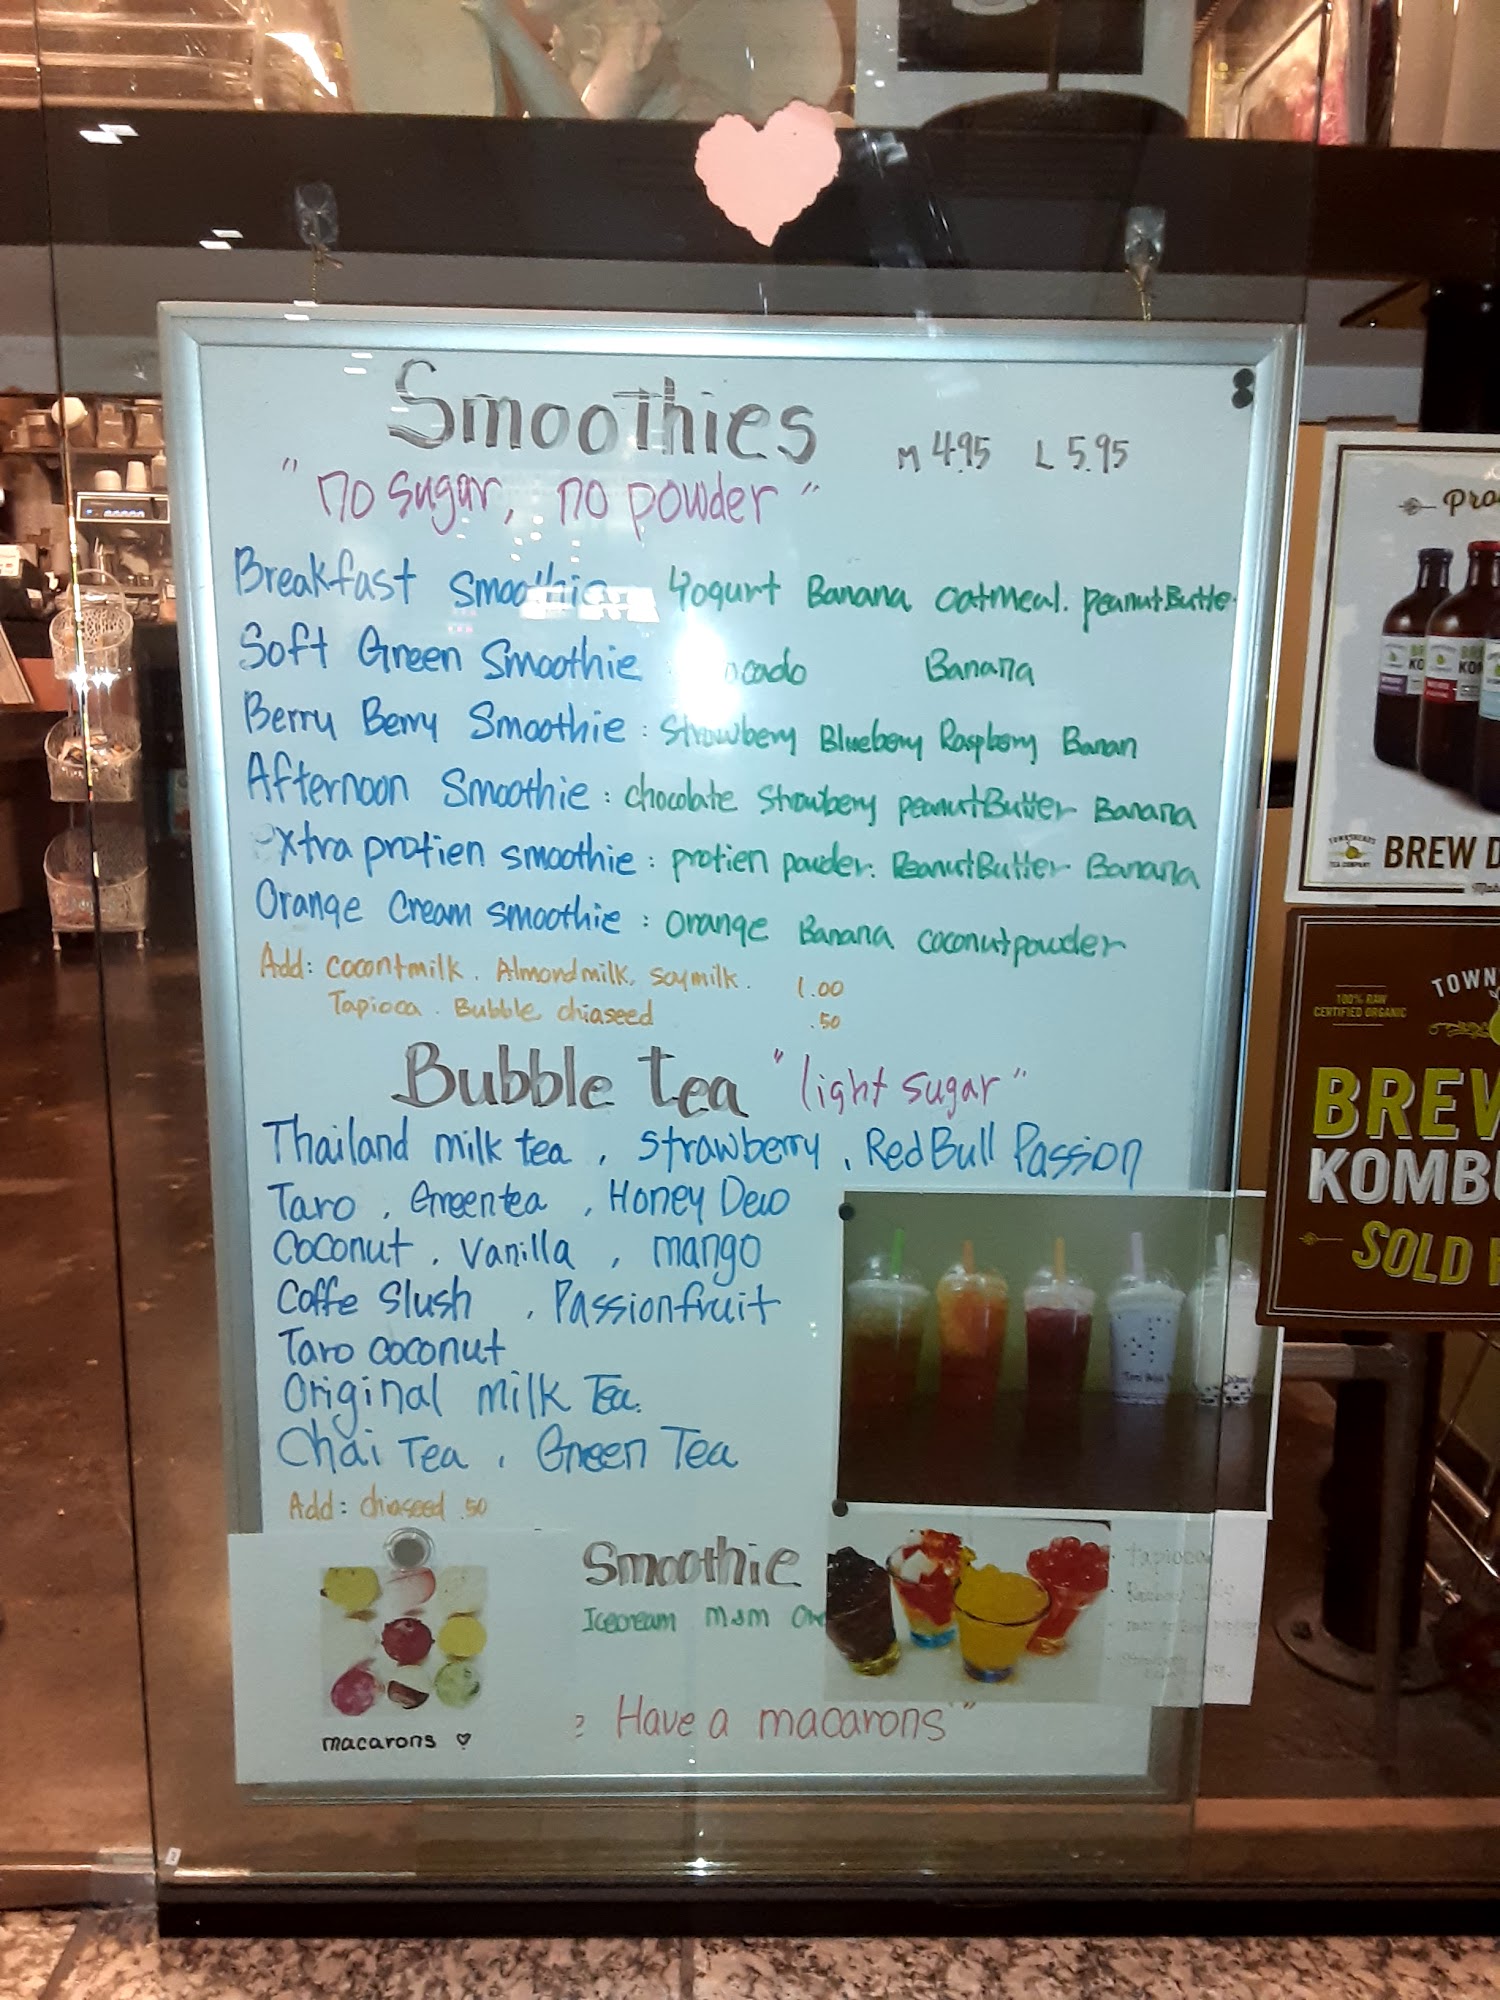 Smoothies M 4.95 L 5.95
"no sugar, no powder"
Breakfast Smoothie Yogurt Banana oatmeal. peanutButte
Soft Green Smoothie ocado Banana
Berry Berry Smoothie : Strawberry Blueberry Raspberry Banan
Afternoon Smoothie : chocolate Strawberry peanutButter Banana
extra protien smoothie : protien powder. PeanutButter Banana
Orange Cream smoothie : orange Banana coconutpowder
Add: cocontmilk. Almondmilk, soymilk. 1.00
Tapioca. Bubble chiaseed .50
Bubble tea "light sugar"
Thailand milk tea, strawberry, RedBull Passion
Taro, Greentea, Honey Dew
Coconut, Vanilla, mango
Coffe Slush, Passionfruit
Taro coconut
Original milk Tea.
Chai Tea, Green Tea
Add: chiaseed .50
Smoothie
Icecream M&M
Tapioca
macarons ♡
Have a macarons"
BREW D
TOWN
100% RAW
CERTIFIED ORGANIC
BREW
KOMBU
SOLD